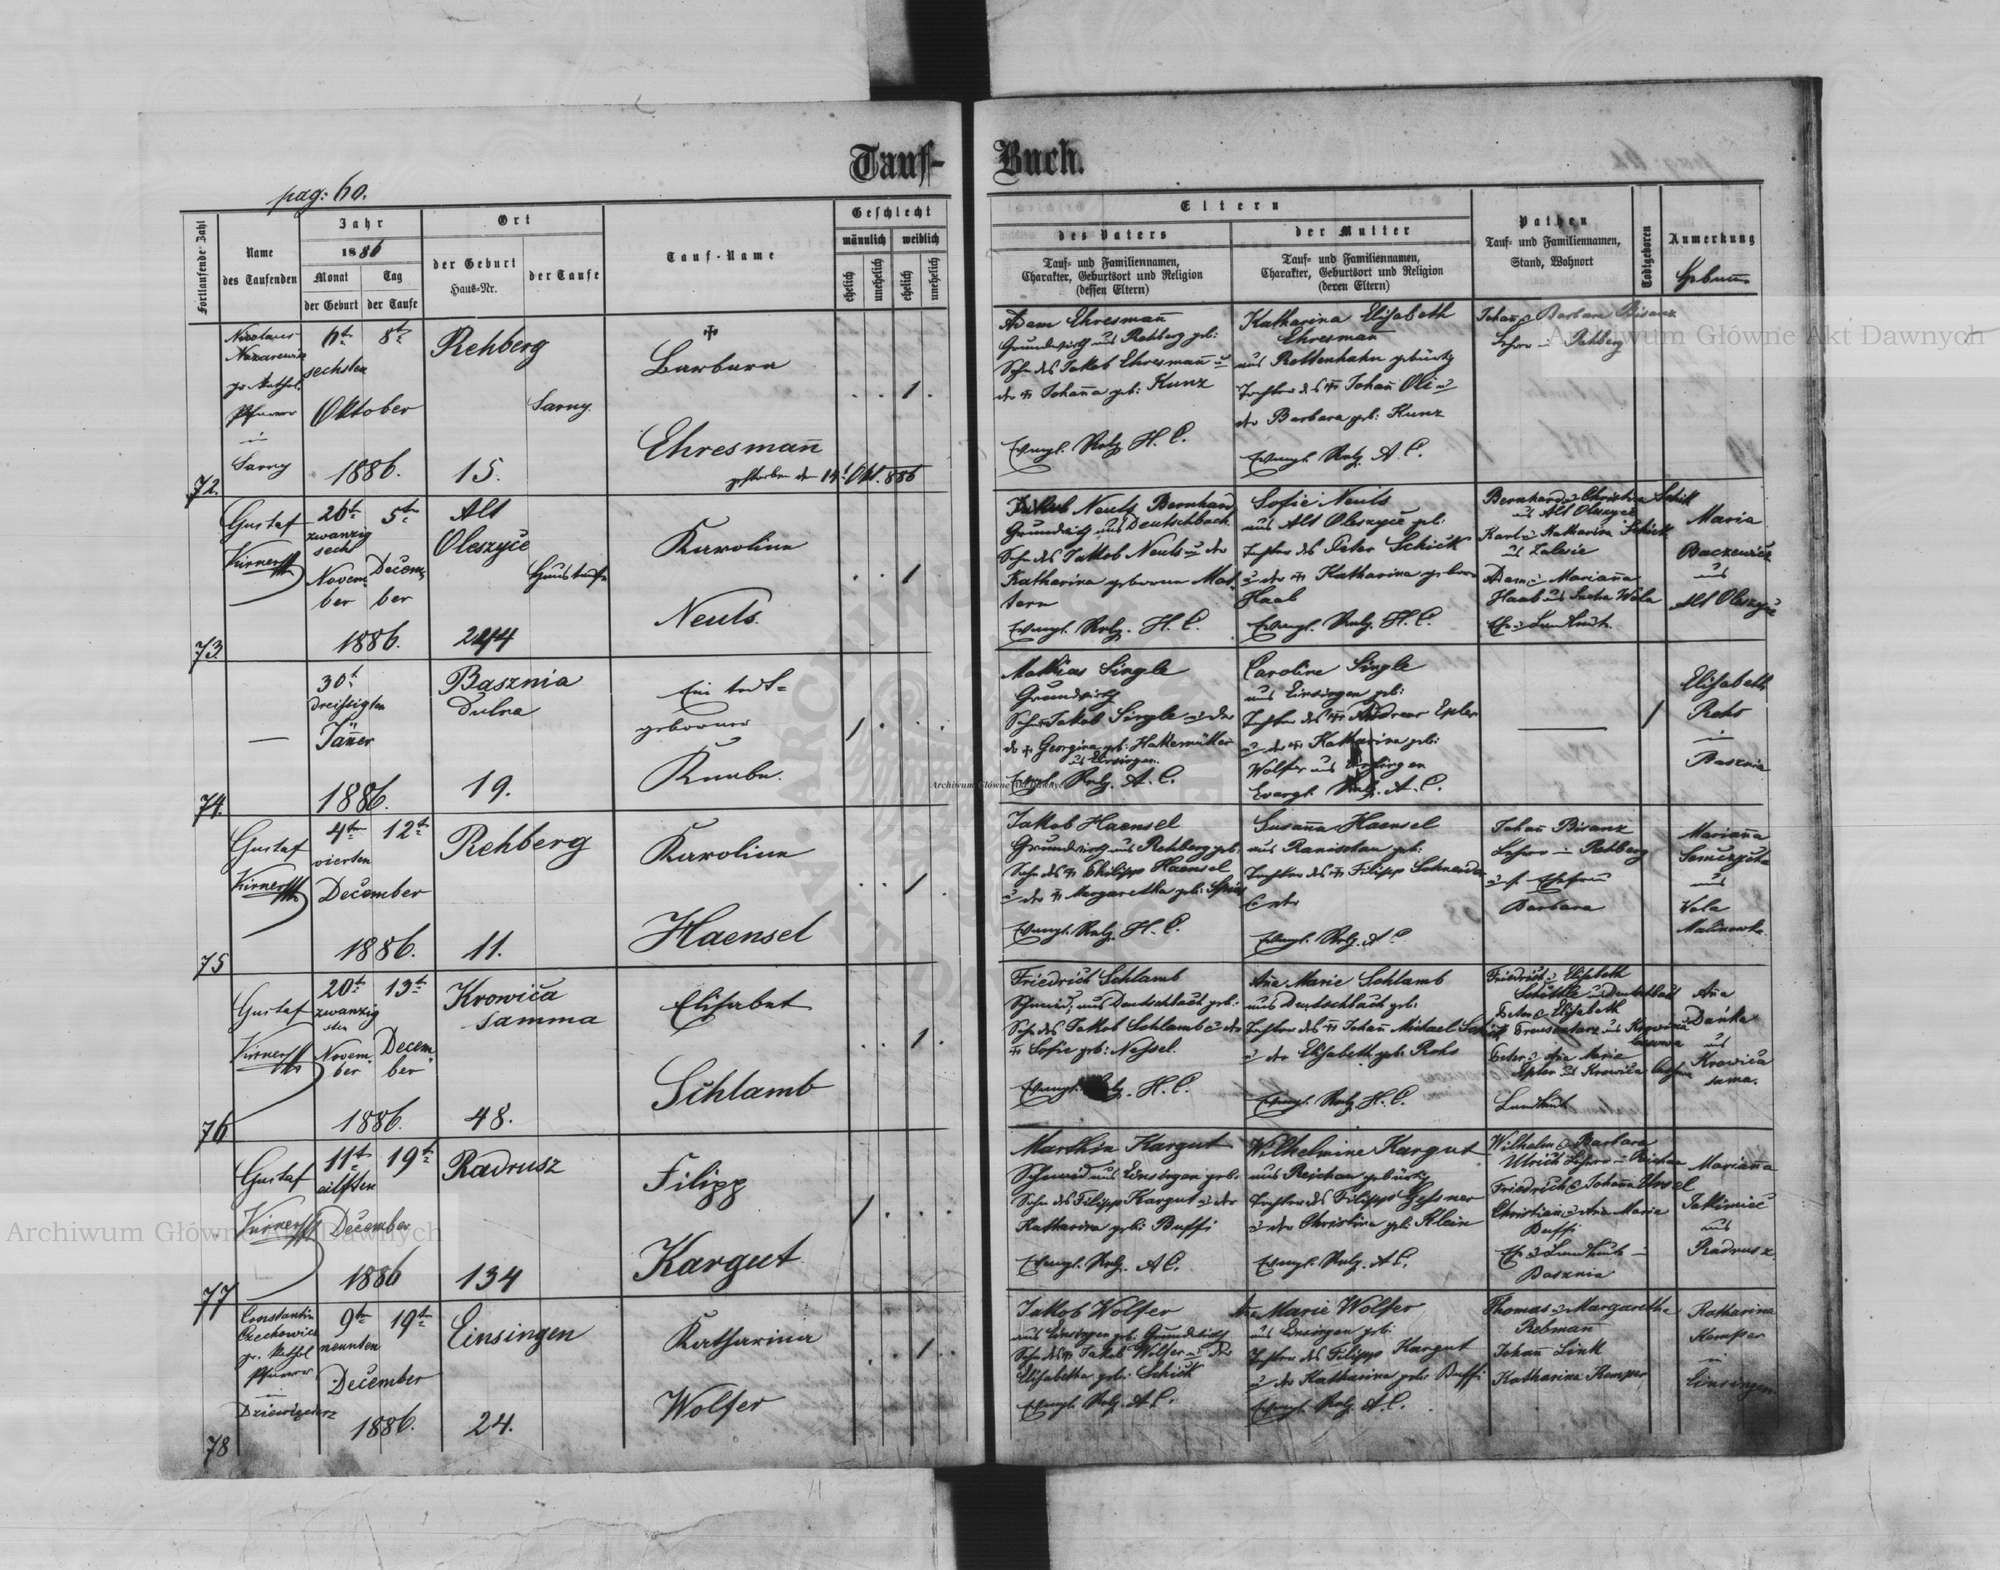 Tauf-Buch.
pag: 60.
Fortlaufende Zahl
Name
des Taufenden
Jahr
1886
Monat
der Geburt
Tag
der Taufe
Ort
der Geburt
Haus-Nr.
der Taufe
Tauf-Name
Geschlecht
männlich
weiblich
ehelich
unehelich
ehelich
unehelich
Eltern
des Vaters
Tauf- und Familiennamen,
Charakter, Geburtsort und Religion
(dessen Eltern)
der Mutter
Tauf- und Familiennamen,
Charakter, Geburtsort und Religion
(deren Eltern)
Pathen
Tauf- und Familiennamen,
Stand, Wohnort
Todtgeboren
Anmerkung
72.
Nicolaus
Pfarrer
in
Sarny
6t
sechsten
Oktober
1886.
8t
Rehberg
15.
Sarny.
Barbara
Ehresmañ
gestorben den 14t Okt. 886
1
Adam Ehresmañ
Grundwirth aus Rehberg geb:
Sohn des Jakob Ehresmañ u
der Johaña geb: Kunz
Evangl. Relg. H. C.
Katharina Elisabeth
Ehresmañ
aus Rottenhahn gebürtig
Tochter des Johañ Oli u
der Barbara geb: Kunz
Evangl. Relg. A. C.
Johañ u Barbara Bisanz
Lehrer in Rehberg
73.
Gustaf
Kirner
26t
zwanzig
sech
Novem
ber
1886.
5t
Decem
ber
Alt
Oleszyce
244
Haustaufe
Karolina
Neuls.
1
Jakob Neuls Bernhard
Grundwirth aus Deutschbach
Sohn des Jakob Neuls u der
Katharina geborne Mat
tern
Evangl. Relg. H. C.
Sofie Neuls
aus Alt Oleszyce geb:
Tochter des Peter Schick
u der Katharina geborne
Haab
Evangl. Relg. H. C.
Bernhard u Christina Schick
aus Alt Oleszyce
Karl u Katharina Schick
aus Zalesie
Adam u Mariaña
Haab aus Sucha Wola
Maria
Baczewicz
aus
Alt Oleszyce
74.
30t
dreissigten
Jäñer
1886.
Basznia
Dulna
19.
Ein todt=
geborner
Knabe.
1
Mathias Single
Grundwirth
Sohn Jakob Single u der
Georgina geb: Hattemüller
aus Einsingen.
Evgl. Relg. A. C.
Caroline Single
aus Einsingen geb:
Tochter des Andreas Epler
u der Katharina geb:
Wolfer aus Einsingen
Evangl. Relg. A. C.
1
Elisabeth
Rohs
in
Basznia
75
Gustaf
Kirner
4ten
vierten
December
1886.
12t
Rehberg
11.
Karolina
Haensel
1
Jakob Haensel
Grundwirth aus Rehberg geb:
Sohn des Philipp Haensel
u der Margaretha geb: Spies
Evangl. Relg. H. C.
Susaña Haensel
aus Ranischau geb:
Tochter des Filipp Schneider
Evangl. Relg. A C
Johañ Bisanz
Lehrer in Rehberg
u s. Ehefrau
Barbara
Mariaña
aus
Wola
Malinowka.
76
Gustaf
Kirner
20t
zwanzig
sten
Novem.
ber
1886.
13t
Decem.
ber
Krowica
samma
48.
Elisabet
Schlamb
1
Friedrich Schlamb
Schmied, aus Deutschbach geb:
Sohn des Jakob Schlamb u der
Sofie geb: Nessel.
Evangl. Relg. H. C.
Aña Marie Schlamb
aus Deutschbach geb:
Tochter des Johañ Michael
u der Elisabeth geb: Rohs
Evangl. Relg. H. C.
Friedrich u Elisabeth
Peter u Elisabeth
Peter u Aña Marie
Epler aus Krowica
Landleute
Aña
Dańka
aus
Krowica
sama.
77
Gustaf
Kirner
11t
eilften
December
1886
19t
Radrusz
134
Filipp
Kargut
1
Marthin Kargut
Schmied aus Einsingen geb:
Sohn des Filipp Kargut u der
Katharina geb: Buffi
Evangl. Relg. A C.
Wilhelmine Kargut
aus Reichau gebürtig
Tochter des Filipp Gessner
u der Christina geb: Klein
Evangl. Relg. A C.
Wilhelm u Barbara
Ulrich Lehrer in Reichau
Friedrich u Johaña Ursel
Christian u Aña Marie
Buffi
Basznia
Mariaña
Jakimiec
aus
Radrusz.
78
Constantin
Czechowicz
gr. kathol
Pfarrer
in
9ten
neunten
December
1886.
19ten
Einsingen
24.
Katharina
Wolfer
1
Jakob Wolfer
aus Einsingen geb. Grundwirth
Sohn des Jakob Wolfer u der
Elisabetha geb: Schick
Evangl. Relg. A C.
Aña Marie Wolfer
aus Einsingen geb:
Tochter des Filipp Kargut
u der Katharina geb: Buffi
Evangl. Relg. A. C.
Thomas u Margaretha
Rebmañ
Johañ Link
Katharina Kemper
Katharina
Kemper
in
Einsingen
Archiwum Główne Akt Dawnych
Archiwum Główne Akt Dawnych
Archiwum Główne Akt Dawnych